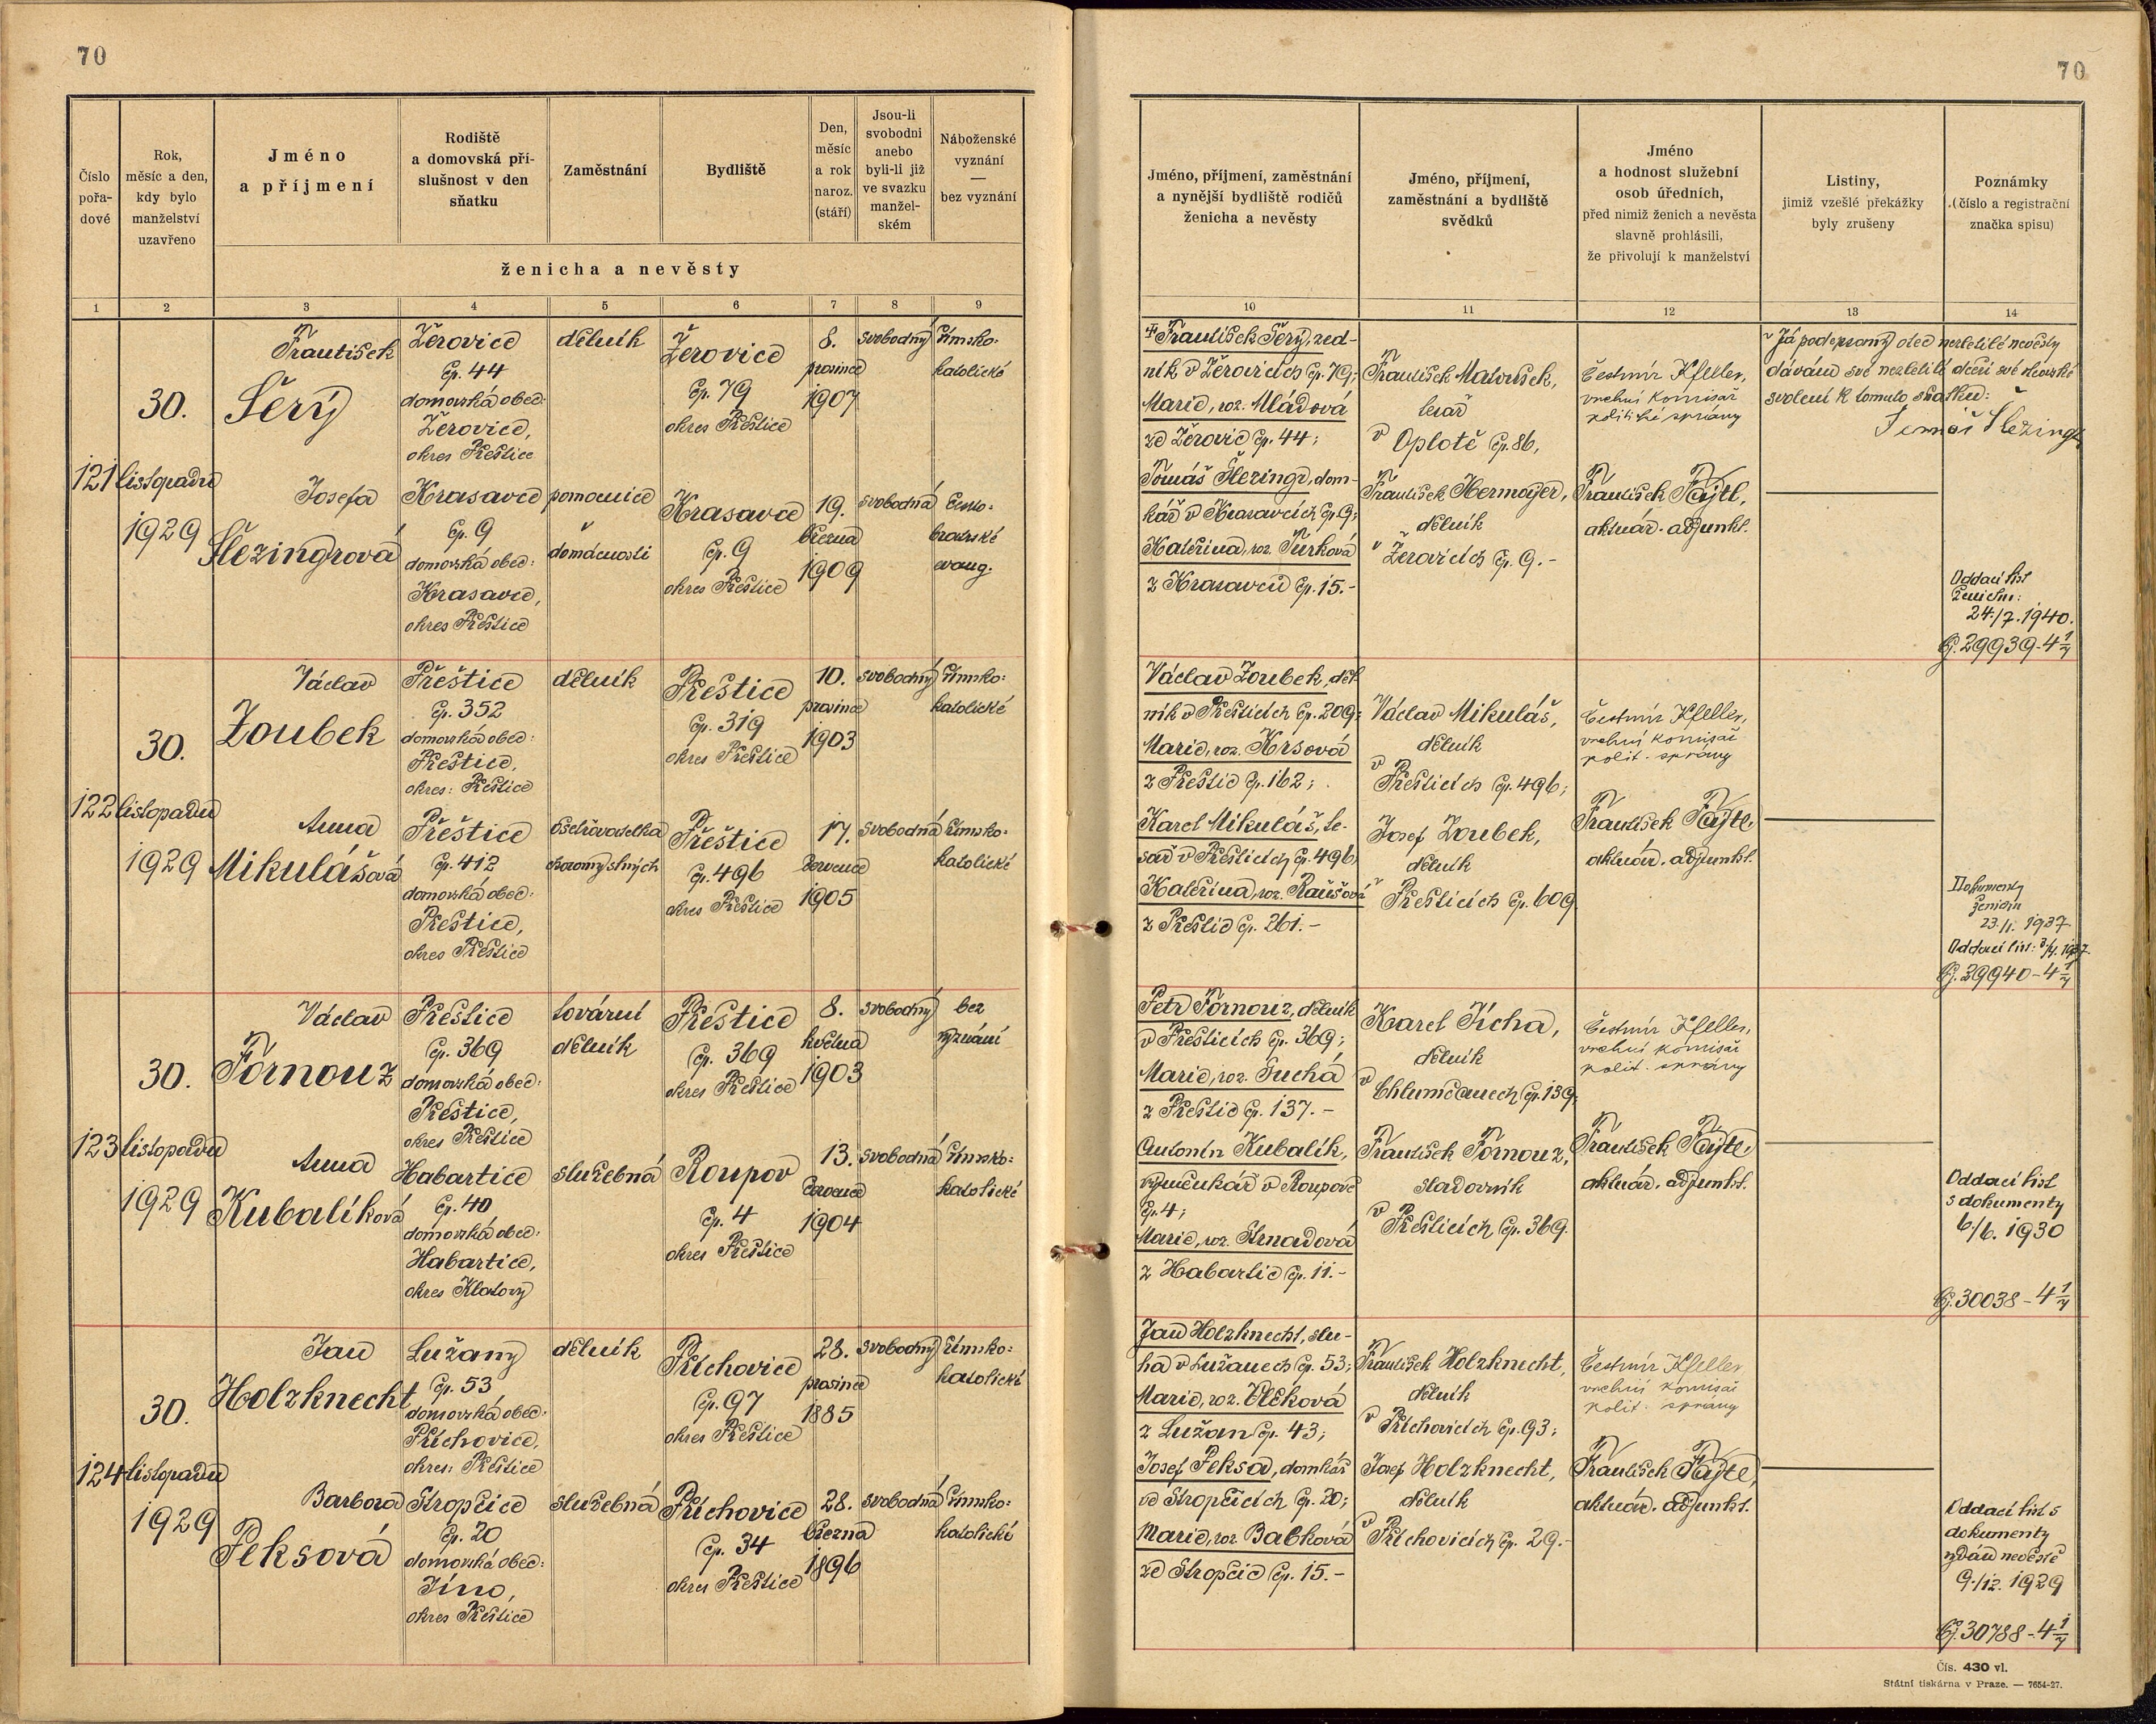 70
Číslo
pořa-
dové
Rok,
měsíc a den,
kdy bylo
manželství
uzavřeno
Jméno
a příjmení
Rodiště
a domovská pří-
slušnost v den
sňatku
Zaměstnání
Bydliště
Den,
měsíc
a rok
naroz.
(stáří)
Jsou-li
svobodni
anebo
byli-li již
ve svazku
manžel-
ském
Náboženské
vyznání
—
bez vyznání
ženicha a nevěsty
1 2 3 4 5 6 7 8 9
121
30.
listopadu
1929
František
Šerý
Žerovice
čp. 44
domovská obec:
Žerovice,
okres Přeštice
dělník
Žerovice
čp. 79
okres Přeštice
8.
prosince
1907
svobodný
římsko-
katolické
Josefa
Šlezingrová
Krasavce
čp. 9
domovská obec:
Krasavce,
okres Přeštice
pomocnice
v
domácnosti
Krasavce
čp. 9
okres Přeštice
19.
března
1909
svobodná
česko-
bratrské
evang.
122
30.
listopadu
1929
Václav
Zoubek
Přeštice
čp. 352
domovská obec:
Přeštice,
okres: Přeštice
dělník
Přeštice
čp. 319
okres Přeštice
10.
prosince
1903
svobodný
římsko-
katolické
Anna
Mikulášová
Přeštice
čp. 412
domovská obec:
Přeštice,
okres Přeštice
ošetřovatelka
choromyslných
Přeštice
čp. 496
okres Přeštice
17.
července
1905
svobodná
římsko-
katolické
123
30.
listopadu
1929
Václav
Förnouz
Přeštice
čp. 369
domovská obec:
Přeštice,
okres Přeštice
tovární
dělník
Přeštice
čp. 369
okres Přeštice
8.
května
1903
svobodný
bez
vyznání
Anna
Kubalíková
Habartice
čp. 40
domovská obec:
Habartice,
okres Klatovy
služebná
Roupov
čp. 4
okres Přeštice
13.
července
1904
svobodná
římsko-
katolické
124
30.
listopadu
1929
Jan
Holzknecht
Lužany
čp. 53
domovská obec:
Příchovice,
okres: Přeštice
dělník
Příchovice
čp. 97
okres Přeštice
28.
prosince
1885
svobodný
římsko-
katolické
Barbora
Peksová
Stropčice
čp. 20
domovská obec:
Jíno,
okres Přeštice
služebná
Příchovice
čp. 34
okres Přeštice
28.
března
1896
svobodná
římsko-
katolické
70
Jméno, příjmení, zaměstnání
a nynější bydliště rodičů
ženicha a nevěsty
Jméno, příjmení,
zaměstnání a bydliště
svědků
Jméno
a hodnost služební
osob úředních,
před nimiž ženich a nevěsta
slavně prohlásili,
že přivolují k manželství
Listiny,
jimiž vzešlé překážky
byly zrušeny
Poznámky
(číslo a registrační
značka spisu)
10 11 12 13 14
František Šerý, zed-
ník v Žerovicích čp. 79;
Marie, roz. Mládová
ze Žerovic čp. 44;
Tomáš Šlezingr, dom-
kář v Krasavcích čp. 9;
Kateřina, roz. Turková
z Krasavců čp. 15.-
František Matoušek,
lesař
v Oplotě čp. 86,
František Hermajer,
dělník
v Žerovicích čp. 9.-
Čestmír Kfeller,
vrchní komisař
politické správy
František Fajtl,
aktuár. adjunkt.
Já podepsaný otec nezletilé nevěsty
dávám své nezletilé dceři své otcovské
svolení k tomuto sňatku:
Tomáš Šlezingr
Oddací list
ženichu:
24./7. 1940.
Čj. 29939-4 1/7
Václav Zoubek, děl-
ník v Přešticích čp. 209;
Marie, roz. Krsová
z Přeštic čp. 162;
Karel Mikuláš, te-
sař v Přešticích čp. 496
Kateřina, roz. Raušová
z Přeštic čp. 261.-
Václav Mikuláš,
dělník
v Přešticích čp. 496;
Josef Zoubek,
dělník
v Přešticích čp. 609
Čestmír Kfeller,
vrchní komisař
polit. správy
František Fajtl,
aktuár. adjunkt.
Dokumenty
23./1. 1937
Oddací list:
Čj. 29940-4 1/7
Petr Förnouz, dělník
v Přešticích čp. 369;
Marie, roz. Suchá
z Přeštic čp. 137.-
Antonín Kubalík,
výměnkář v Roupově
čp. 4;
Marie, roz. Strnadová
z Habartic čp. 11.-
Karel Tícha,
dělník
v Chlumčanech čp. 139,
František Förnouz,
sladovník
v Přešticích čp. 369.
Čestmír Kfeller,
vrchní komisař
polit. správy
František Fajtl,
aktuár. adjunkt.
Oddací list
s dokumenty
6./6. 1930
Čj. 30038-4 1/7
Jan Holzknecht, slu-
ha v Lužanech čp. 53;
Marie, roz. Vlčková
z Lužan čp. 43;
Josef Peksa, domkář
ve Stropčicích čp. 20;
Marie, roz. Babková
ze Stropčic čp. 15.-
František Holzknecht,
dělník
v Příchovicích čp. 93;
Josef Holzknecht,
dělník
v Příchovicích čp. 29.-
Čestmír Kfeller
vrchní komisař
polit. správy
František Fajtl,
aktuár. adjunkt.
Oddací list s
dokumenty
vydán nevěstě
9./12. 1929
Čj. 30788-4 1/7
Čís. 430 vl.
Státní tiskárna v Praze. — 7654-27.